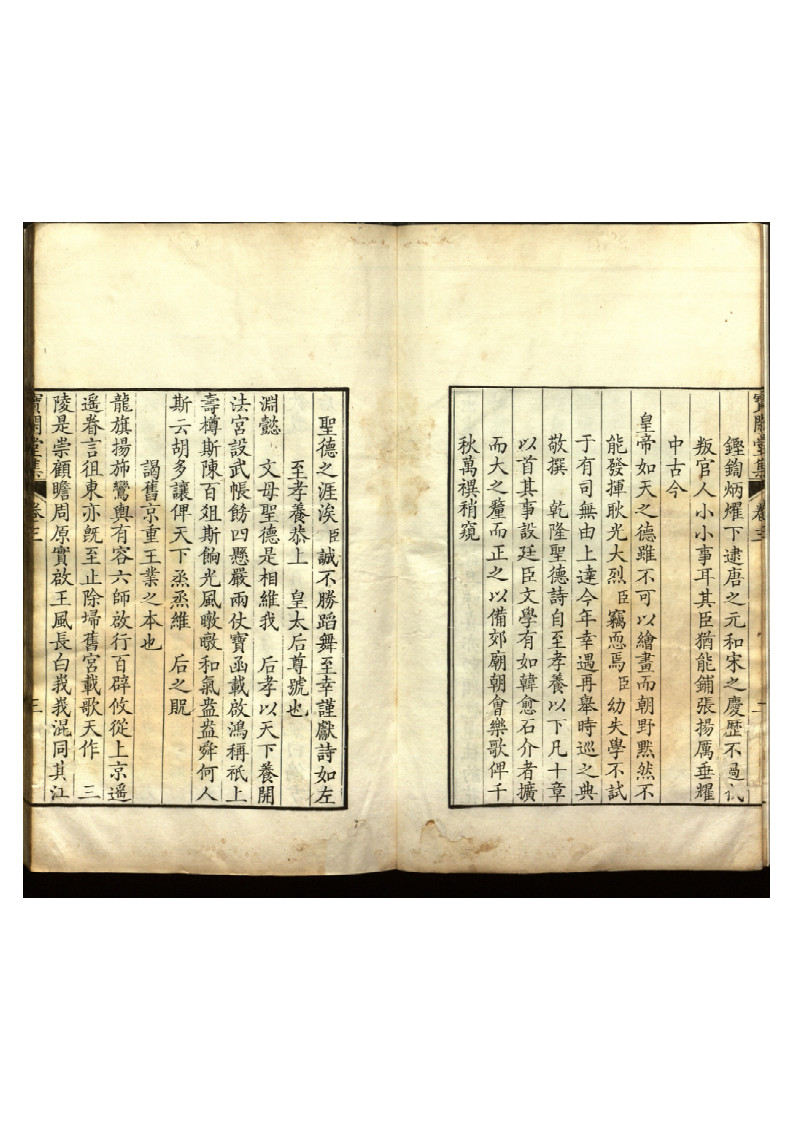 寶閑堂集 卷三 二
鏗鍧炳燿下逮唐之元和宋之慶歷不過
叛官人小小事耳其臣猶能鋪張揚厲垂耀
中古今
皇帝如天之德雖不可以繪畫而朝野黙然不
能發揮耿光大烈臣竊恧焉臣幼失學不試
于有司無由上達今年幸遇再舉時巡之典
敬撰 乾隆聖德詩自至孝養以下凡十章
以首其事設廷臣文學有如韓愈石介者擴
而大之釐而正之以備郊廟朝會樂歌俾千
秋萬禩稍窺
聖德之涯涘臣誠不勝蹈舞至幸謹獻詩如左
至孝養恭上 皇太后尊號也
淵懿 文母聖德是相維我 后孝以天下養開
法宮設武帳餝四懸嚴兩仗寶函載啟鴻稱祇上
壽樽斯陳百爼斯餉光風暾暾和氣盎盎舜何人
斯云胡多讓俾天下烝烝維 后之貺
謁舊京重王業之本也
龍旗揚斾鸞輿有容六師啟行百辟攸從上京遥
遥眷言徂東亦旣至止除埽舊宮載歌天作 三
陵是崇顧瞻周原實啟王風長白峩峩混同其江
寶閑堂集 卷三 三